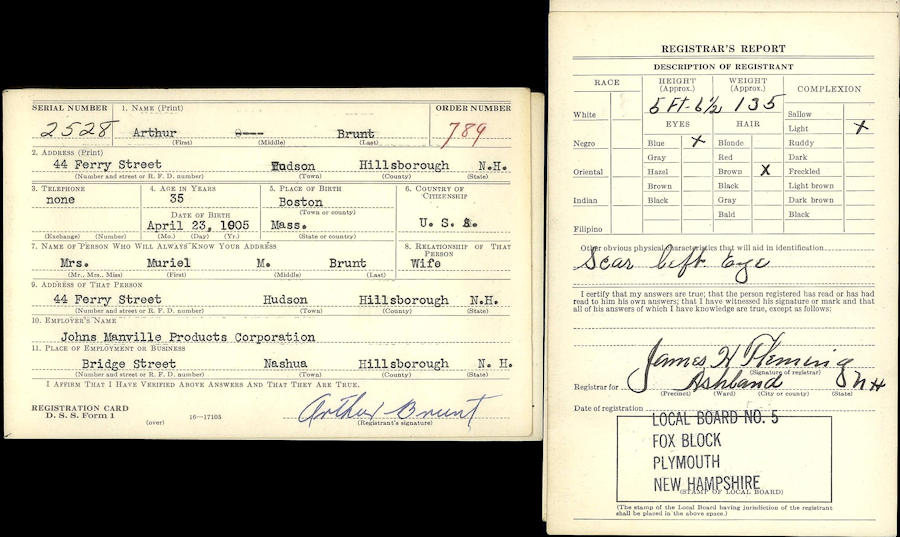 SERIAL NUMBER 1. NAME (Print) ORDER NUMBER
2528 Arthur ---- Brunt 789
(First) (Middle) (Last)
2. ADDRESS (Print)
44 Ferry Street Hudson Hillsborough N.H.
(Number and street or R. F. D. number) (Town) (County) (State)
3. TELEPHONE 4. AGE IN YEARS 5. PLACE OF BIRTH 6. COUNTRY OF CITIZENSHIP
none 35 Boston
(Town or county)
DATE OF BIRTH U. S. A.
April 23, 1905 Mass.
(Exchange) (Number) (Mo.) (Day) (Yr.) (State or country)
7. NAME OF PERSON WHO WILL ALWAYS KNOW YOUR ADDRESS 8. RELATIONSHIP OF THAT PERSON
Mrs. Muriel M. Brunt Wife
(Mr., Mrs., Miss) (First) (Middle) (Last)
9. ADDRESS OF THAT PERSON
44 Ferry Street Hudson Hillsborough N.H.
(Number and street or R. F. D. number) (Town) (County) (State)
10. EMPLOYER'S NAME
Johns Manville Products Corporation
11. PLACE OF EMPLOYMENT OR BUSINESS
Bridge Street Nashua Hillsborough N. H.
(Number and street or R. F. D. number) (Town) (County) (State)
I AFFIRM THAT I HAVE VERIFIED ABOVE ANSWERS AND THAT THEY ARE TRUE.
REGISTRATION CARD
D. S. S. Form 1 16—17105 Arthur Brunt
(over) (Registrant's signature)
REGISTRAR'S REPORT
DESCRIPTION OF REGISTRANT
RACE HEIGHT (Approx.) WEIGHT (Approx.) COMPLEXION
5 Ft-6 1/2 135
White Sallow
EYES HAIR Light X
Negro Blue X Blonde Ruddy
Gray Red Dark
Oriental Hazel Brown X Freckled
Brown Black Light brown
Indian Black Gray Dark brown
Bald Black
Filipino
Other obvious physical characteristics that will aid in identification
Scar left Eye
I certify that my answers are true; that the person registered has read or has had
read to him his own answers; that I have witnessed his signature or mark and that
all of his answers of which I have knowledge are true, except as follows:
James H Fleming
(Signature of registrar)
Registrar for Ashland NH
(Precinct) (Ward) (City or county) (State)
Date of registration
LOCAL BOARD NO. 5
FOX BLOCK
PLYMOUTH
NEW HAMPSHIRE
(STAMP OF LOCAL BOARD)
(The stamp of the Local Board having jurisdiction of the registrant
shall be placed in the above space.)